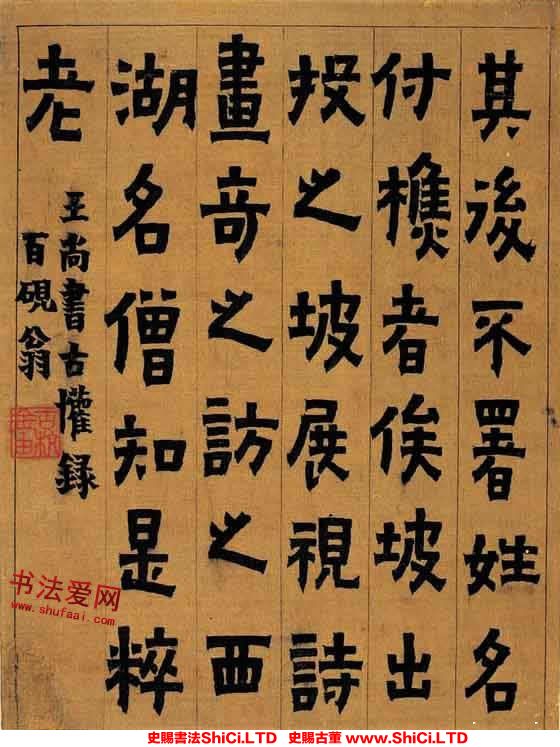 其後不署姓名
付樵者俟坡出
投之坡展視詩
畫奇之訪之西
湖名僧知是粹
老
王尚書古懽錄
百硯翁
书法爱网
www.shufaai.com
史賜書法ShiCi.LTD 史賜古董ShiCi.LTD